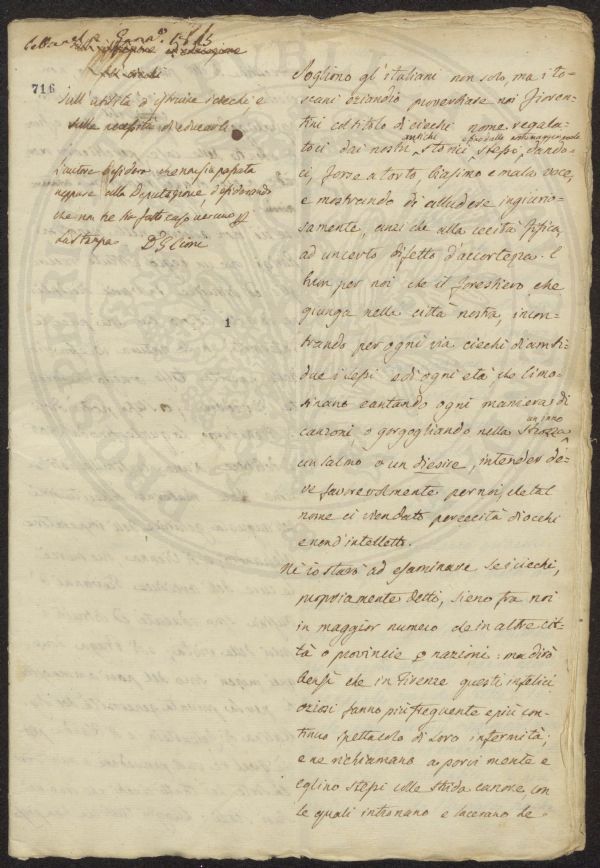 716
Sull' utilità d'istruire i ciechi e
sulla necessità di educarli
L'autore
neppure alla Deputazione, desiderando
che non ne ha fatto caso veruno p
la stampa
1
Sogliono gl'italiani non solo, ma i to-
scani eziandio proverbiare noi Fioren-
tini col titolo di ciechi nome regala-
toci dai nostri antichi storici stessi, dando-
ci, forse a torto, biasimo e mala voce,
e mostrando di alludere ingiurio-
samente, anzi che alla cecità fisica,
ad un certo difetto d'accortezza. E
buon per noi che il forestiero che
giunga nella città nostra, incon-
trando per ogni via ciechi d'amb-
due i sessi e di ogni età, che limo-
sinano cantando ogni maniera di
canzoni, o gorgogliando nella strozza un inno
un salmo o un diesire, intender de-
ve favorevolmente per noi, che tal
nome ci vien dato per cecità di occhi
e non d'intelletto.
Nè io starò ad esaminare se i ciechi,
propriamente detti, sieno fra noi
in maggior numero che in altre cit-
tà o provincie o nazioni: ma dirò
bensì che in Firenze questi infelici
oziosi fanno più frequente e più con-
tinuo spettacolo di loro infermità;
e ne richiamano a porvi mente
eglino stessi colle strida canore, con
le quali intronano e lacerano le